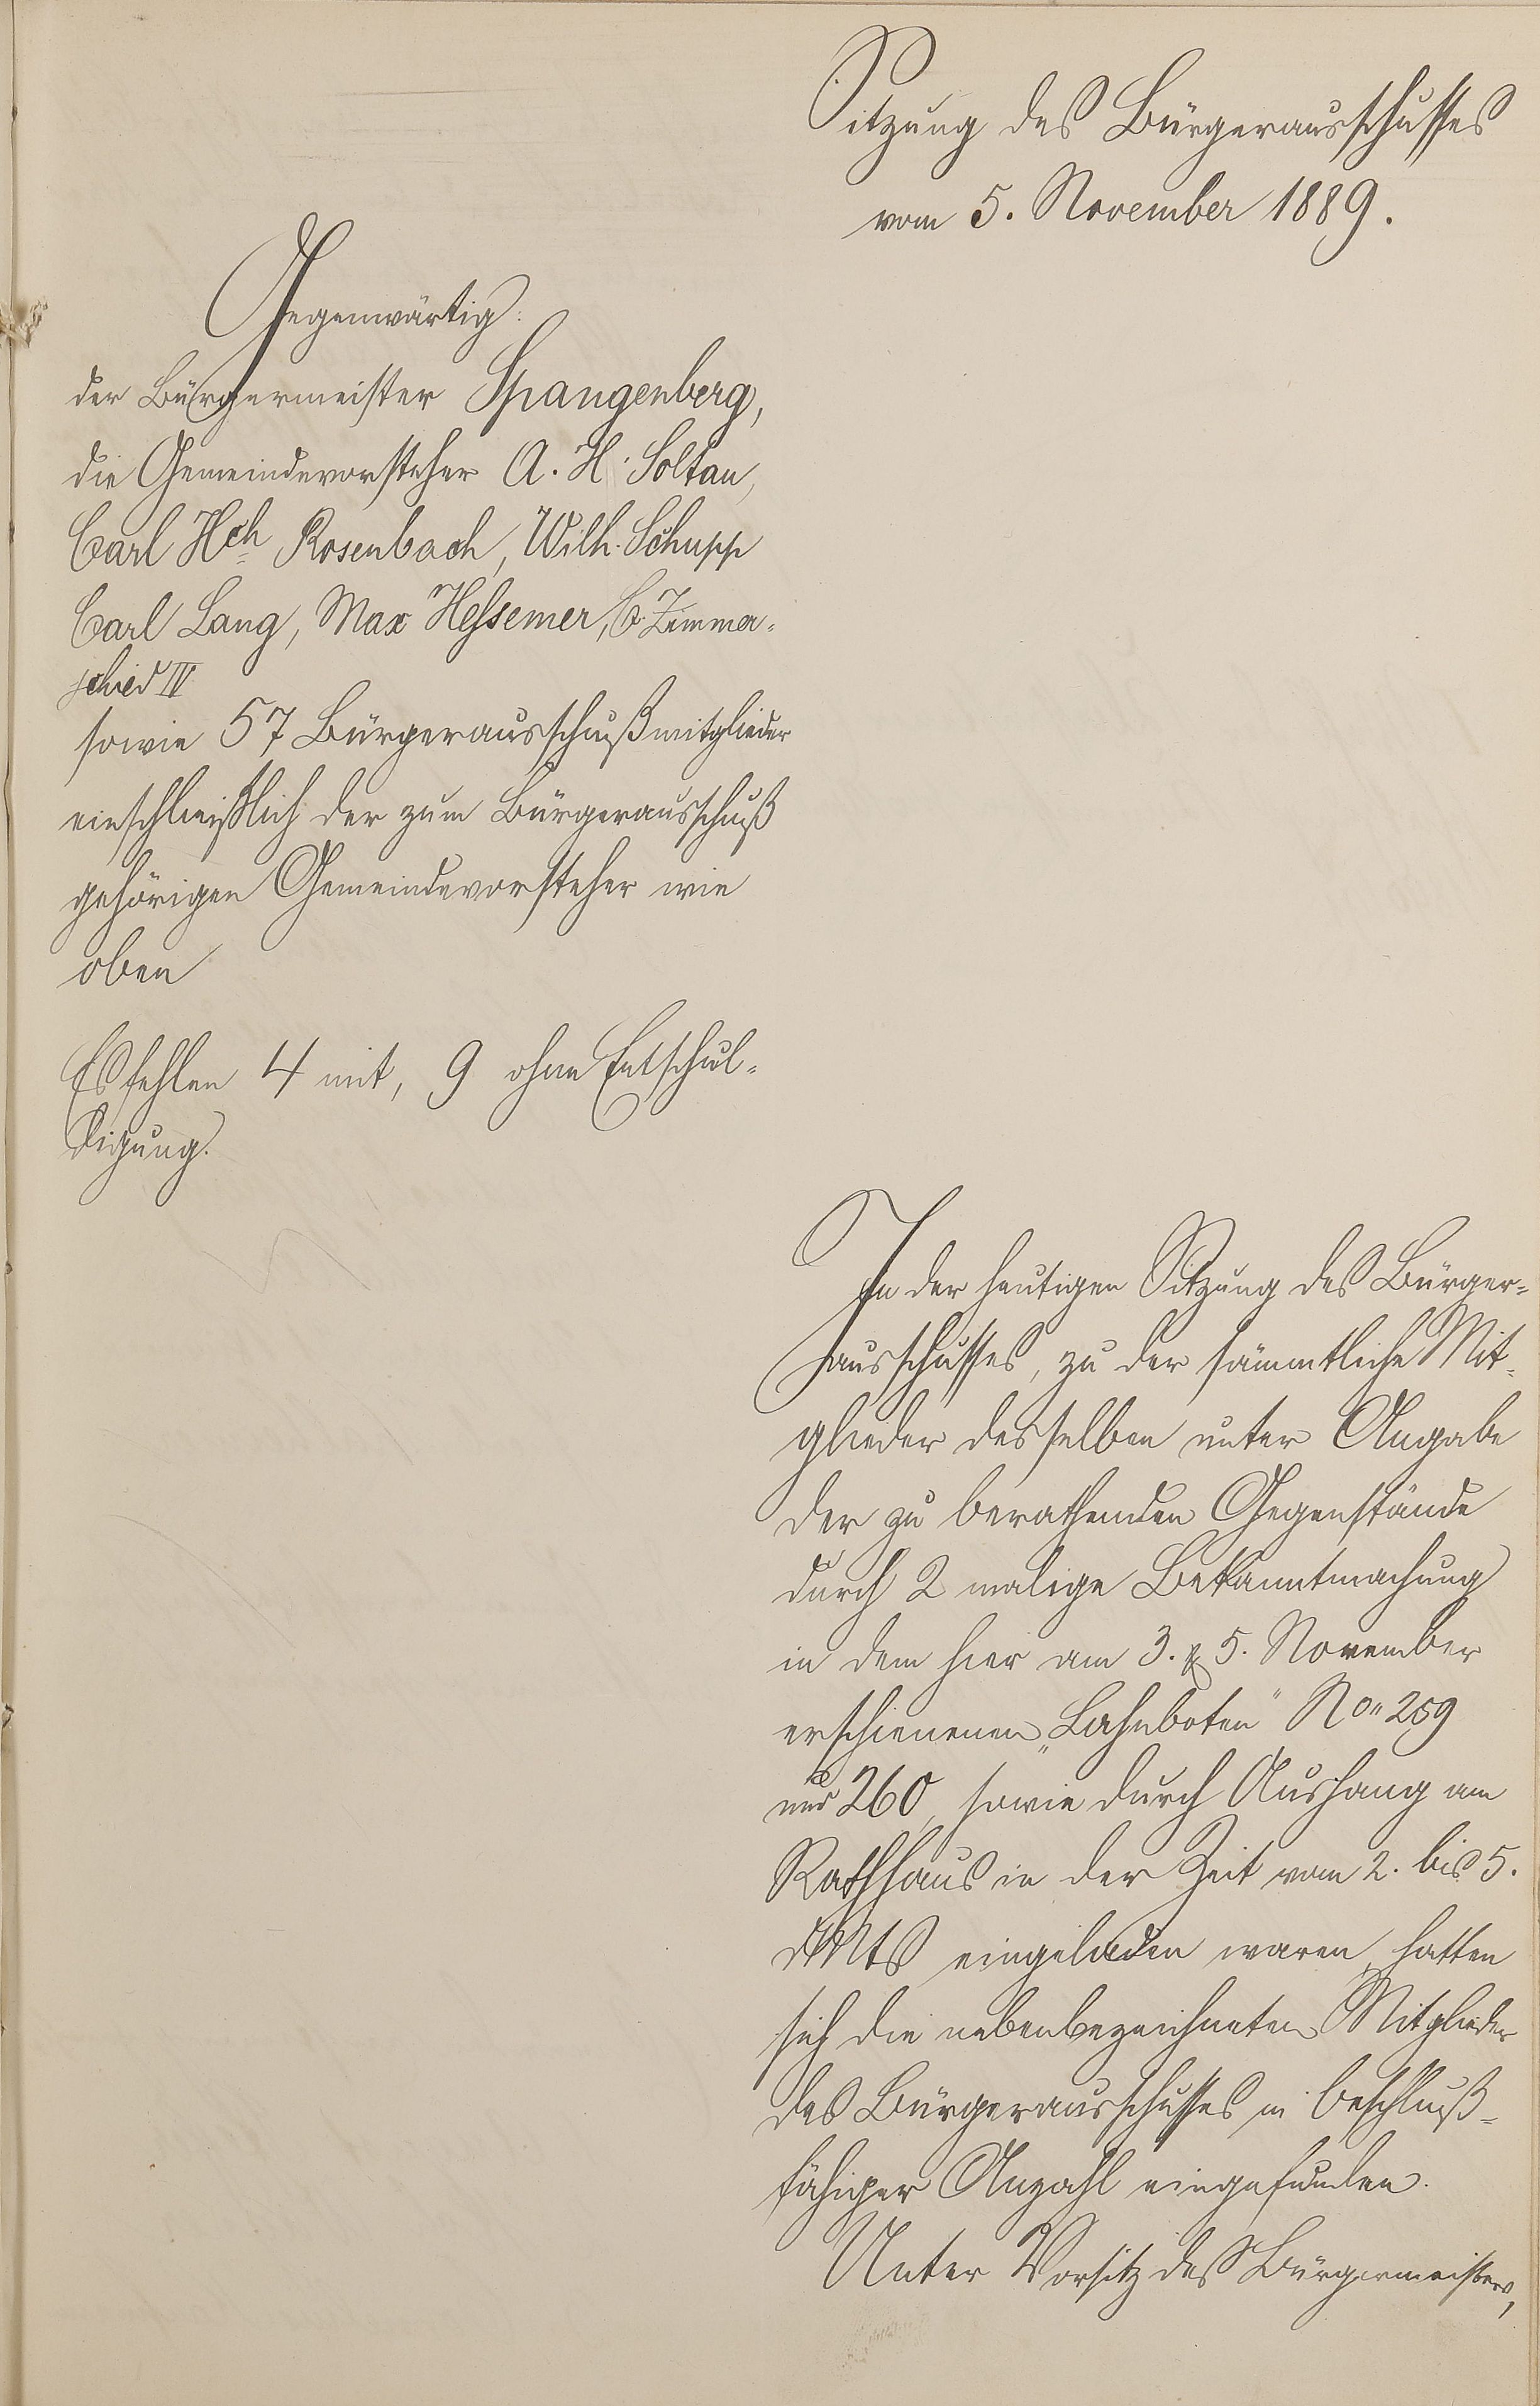 Sitzung des Bürgerausschusses
vom 5. November 1889.
Gegenwärtig:
der Bürgermeister Spangenberg,
die Gemeindevorsteher A. H. Soltau,
Carl Hch Rosenbach, Wilh. Schupp
Carl Lang, Max Hessemer, C. Zimmer-
schied IV
sowie 57 Bürgerausschußmitglieder
einschließlich der zum Bürgerausschuß
gehörigen Gemeindevorsteher wie
oben
Es fehlen 4 mit, 9 ohne Entschul-
digung.
In der heutigen Sitzung des Bürger-
ausschusses, zu der sämmtliche Mit-
glieder desselben unter Angabe
der zu berathenden Gegenstände
durch 2 malige Bekanntmachung
in dem hier am 3. & 5. November
erschienenen „Lahnboten" No 259
und 260, sowie durch Aushang am
Rathhaus in der Zeit vom 2. bis 5.
d Mts eingeladen waren, hatten
sich die nebenbezeichneten Mitglieder
des Bürgerausschusses in beschluß-
fähiger Anzahl eingefunden.
Unter Vorsitz des Bürgermeisters,